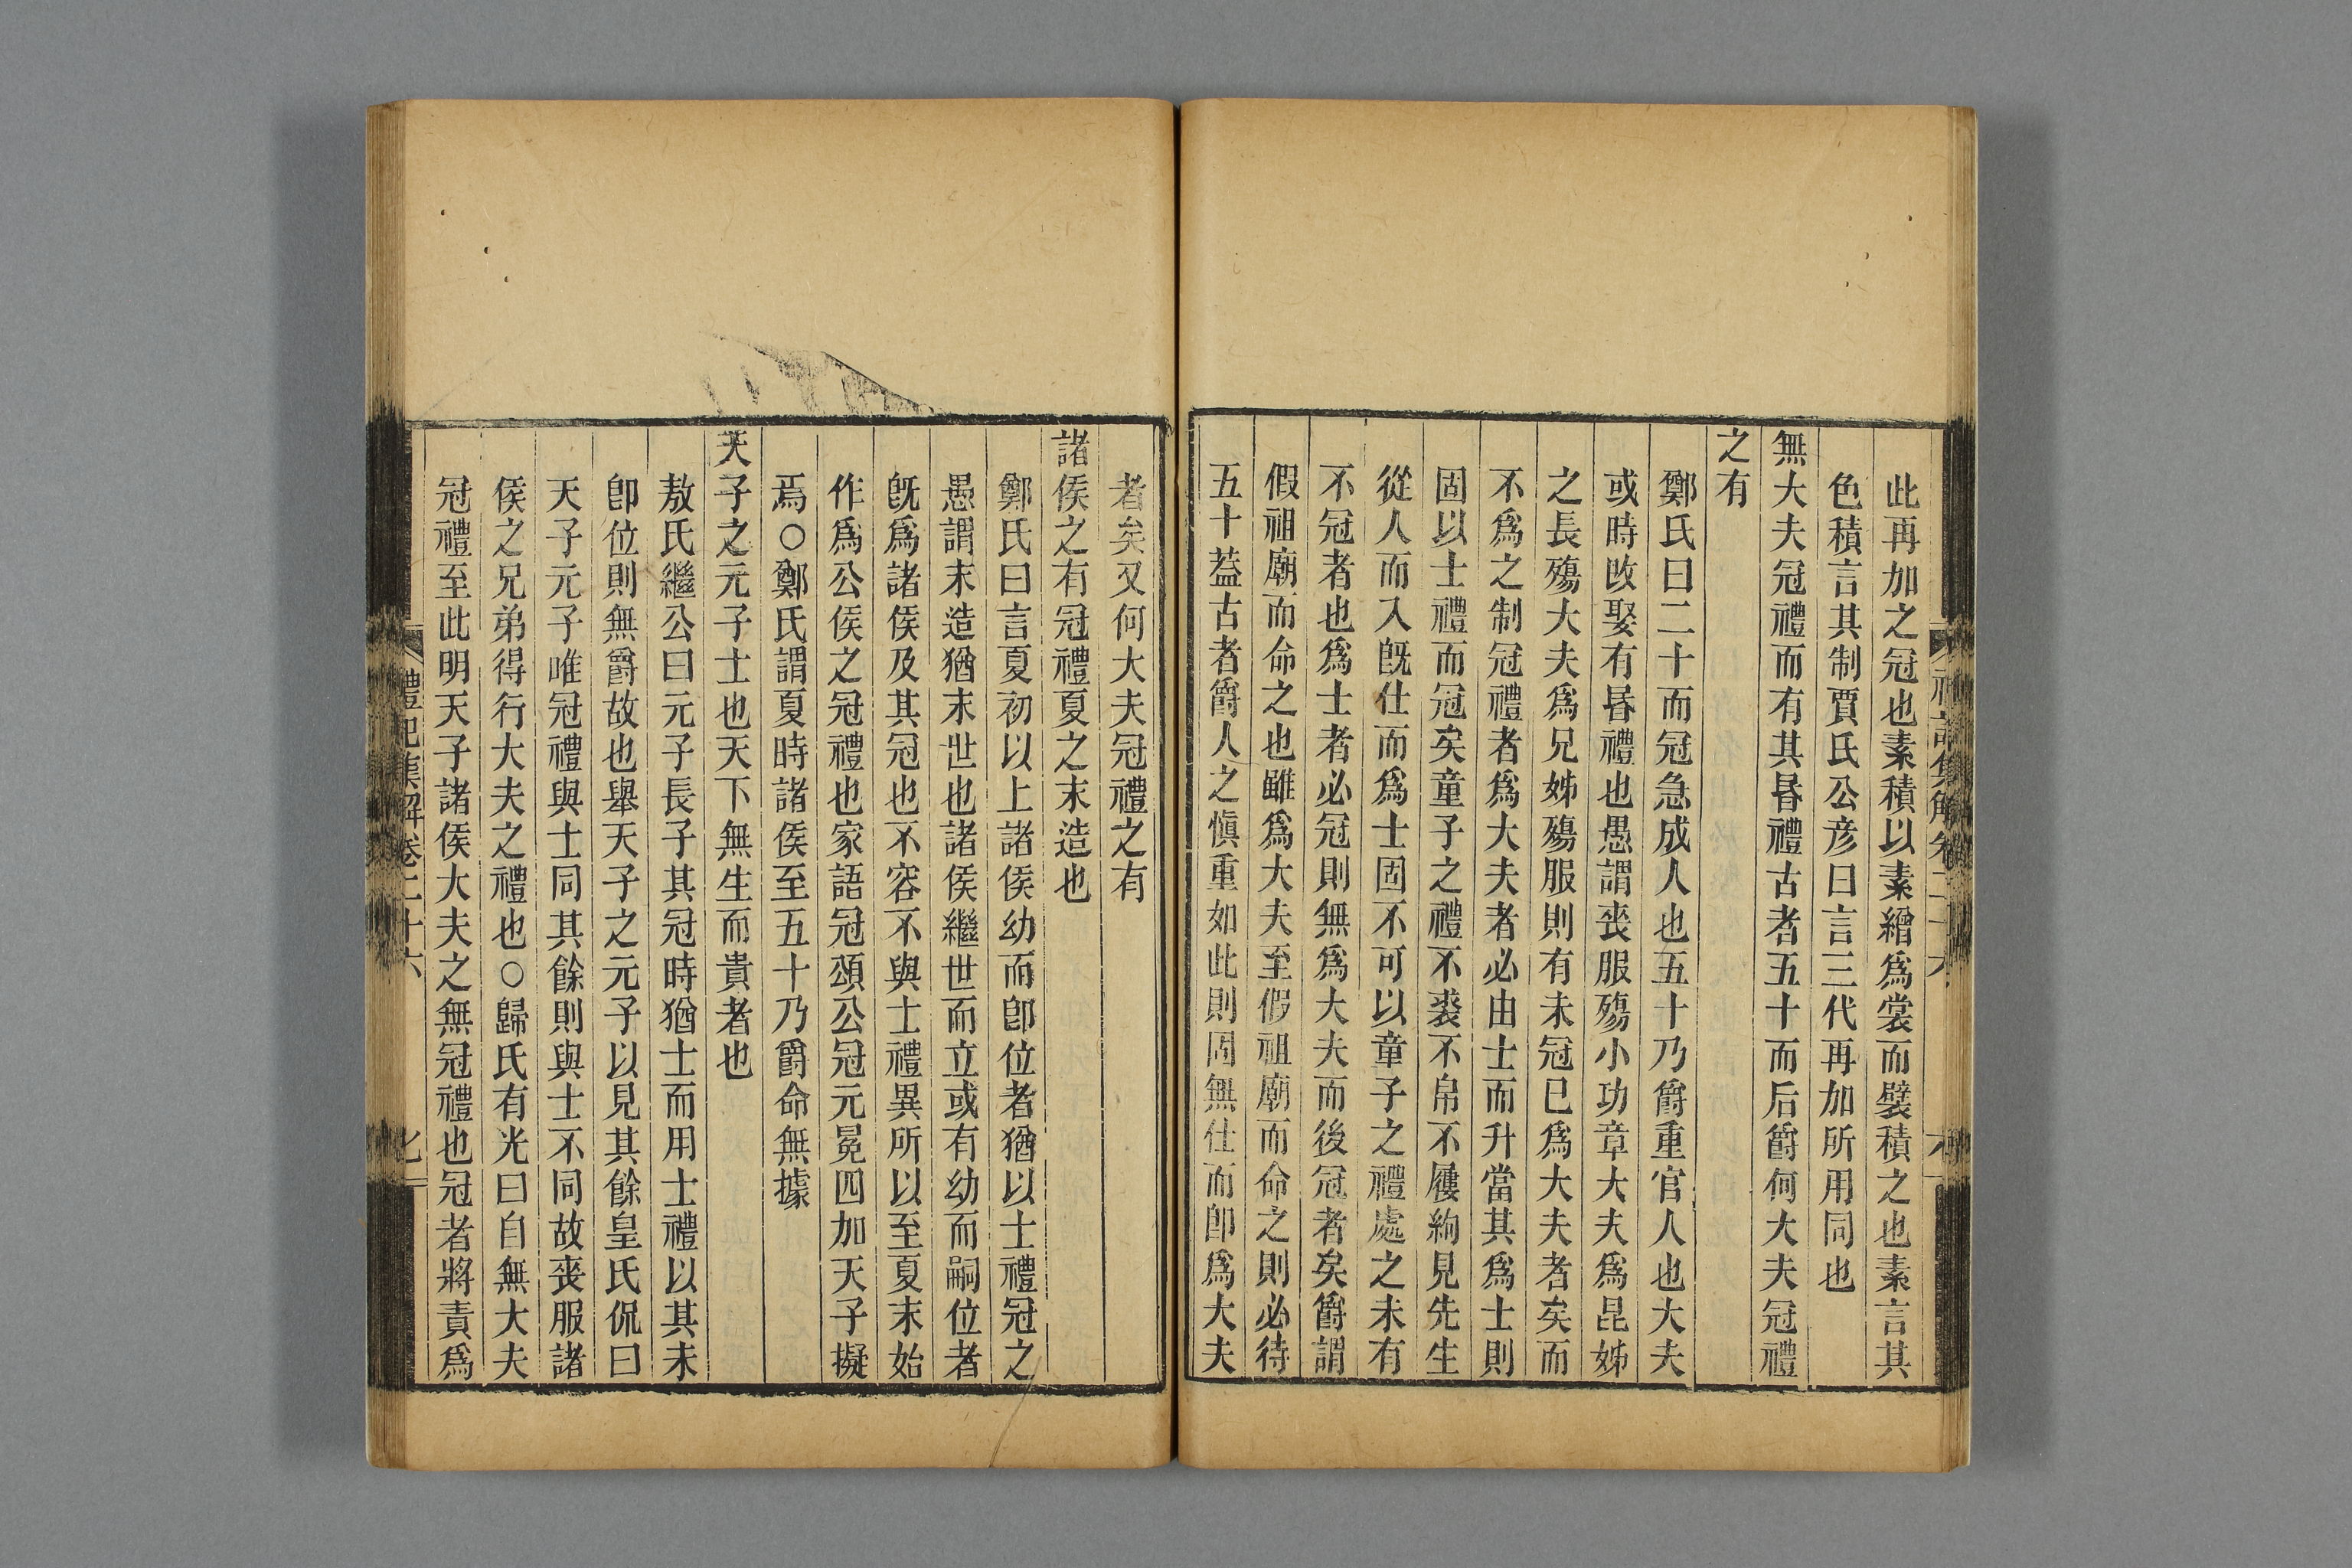 此再加之冠也素積以素繒爲裳而襞積之也素言其
色積言其制賈氏公彥曰言三代再加所用同也
無大夫冠禮而有其昏禮古者五十而后爵何大夫冠禮
之有
鄭氏曰二十而冠急成人也五十乃爵重官人也大夫
或時改娶有昏禮也愚謂喪服殤小功章大夫爲昆姊
之長殤大夫爲兄姊殤服則有未冠已爲大夫者矣而
不爲之制冠禮者爲大夫者必由士而升當其爲士則
固以士禮而冠矣童子之禮不裘不帛不屨絇見先生
從人而入旣仕而爲士固不可以童子之禮處之未有
不冠者也爲士者必冠則無爲大夫而後冠者矣爵謂
假祖廟而命之也雖爲大夫至假祖廟而命之則必待
五十蓋古者爵人之愼重如此則固無仕而卽爲大夫
者矣又何大夫冠禮之有
諸侯之有冠禮夏之末造也
鄭氏曰言夏初以上諸侯幼而卽位者猶以士禮冠之
愚謂末造猶末世也諸侯繼世而立或有幼而嗣位者
旣爲諸侯及其冠也不容不與士禮異所以至夏末始
作爲公侯之冠禮也家語冠頌公冠元冕四加天子擬
焉○鄭氏謂夏時諸侯至五十乃爵命無據
天子之元子士也天下無生而貴者也
敖氏繼公曰元子長子其冠時猶士而用士禮以其未
卽位則無爵故也舉天子之元子以見其餘皇氏侃曰
天子元子唯冠禮與士同其餘則與士不同故喪服諸
侯之兄弟得行大夫之禮也○歸氏有光曰自無大夫
冠禮至此明天子諸侯大夫之無冠禮也冠者將責爲
禮記集解卷二十六